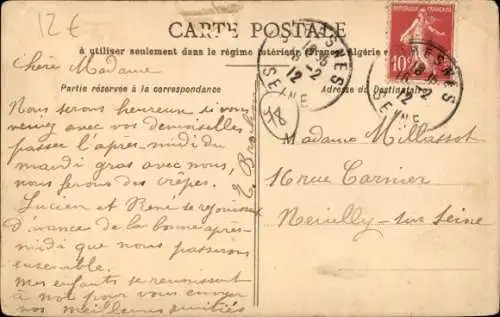 12€
CARTE POSTALE
à utiliser seulement dans le régime intérieur (France, Algérie
Partie réservée à la correspondance
Adresse du Destinataire
REPUBLIQUE FRANÇAISE
10
SURESNES
18-2
12
SEINE
SURESNES
18-2
12
SEINE
78
Chère Madame
Nous serons heureux si vous
veniez avec vos demoiselles
passer l'après-midi du
mardi gras avec nous,
nous ferons des crêpes.
Lucien et René se rejouissent
d'avance de la bonne après-
midi que nous passerons
ensemble.
Mes enfants se reunissent
à moi pour vous envoyer
nos meilleures amitiés
Madame Millassot
16 rue
Neuilly-sur-Seine